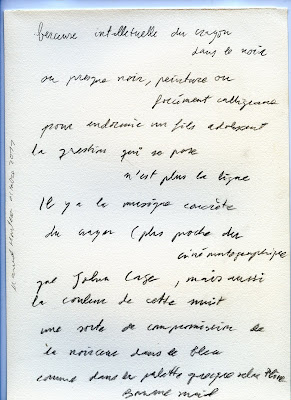 berceuse intellectuelle du crayon
dans le noir
ou presque noir, peinture ou
forcément calligramme
pour endormir un fils adolescent
la question qui se pose
n'est plus la ligne
Il y a la musique concrète
du crayon (plus proche du
cinématographique
que John Cage, mais aussi
la couleur de cette nuit
une sorte de compromission de
la noirceur dans le bleu
comme dans la palette grecque selon Pline
Bonne nuit
octobre 2017